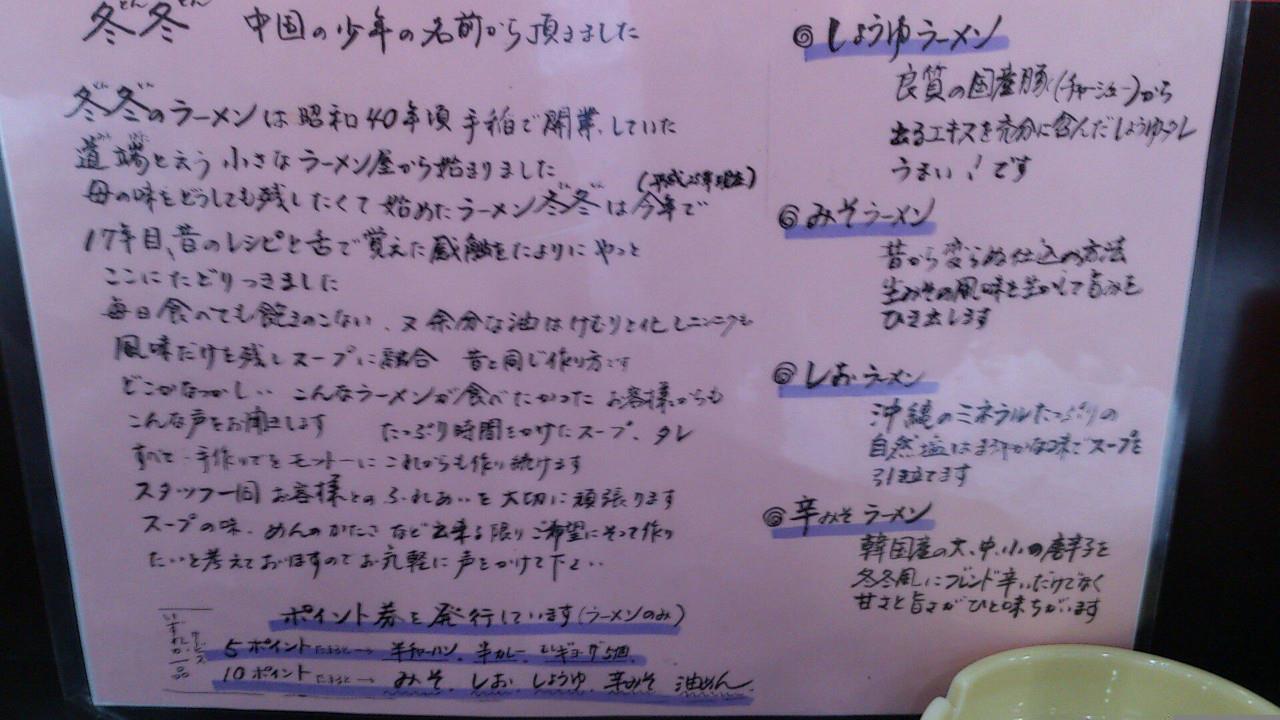 冬冬 中国の少年の名前から頂きました
冬冬のラーメンは昭和40年頃 手稲で開業していた
道端と云う小さなラーメン屋から始まりました
(平成25年現在)
母の味をどうしても残したくて始めたラーメン冬冬は今年で
17年目、昔のレシピと舌で覚えた感触をたよりに やっと
ここにたどりつきました
毎日食べても飽きのこない、又 余分な油はけむりと化しニンニクも
風味だけを残しスープに融合 昔と同じ作り方です
どこかなつかしい こんなラーメンが食べたかった お客様からも
こんな声をお聞きします たっぷり時間をかけたスープ、タレ
すべて手作りでをモットーに これからも作り続けます
スタッフ一同 お客様とのふれあいを大切に頑張ります
スープの味、めんのかたさなど出来る限りご希望にそって作り
たいと考えておりますのでお気軽に声をかけて下さい
ポイント券を発行しています(ラーメンのみ)
いずれか一品 サービス
5ポイントたまると→ 半チャーハン、半カレー、ギョーザ5個
10ポイントたまると→ みそ、しお、しょうゆ、辛みそ 油めん
しょうゆラーメン
良質の国産豚(チャーシュー)から
出るエキスを充分に含んだしょうゆタレ
うまい!です
みそラーメン
昔から変らぬ仕込の方法
生みその風味を生かして旨みを
ひき出します
しおラーメン
沖縄のミネラルたっぷりの
自然塩はまろやかな味でスープを
引立てます
辛みそラーメン
韓国産の大、中、小の唐辛子を
冬冬風にブレンド辛いだけでなく
甘さと旨さがひと味ちがいます